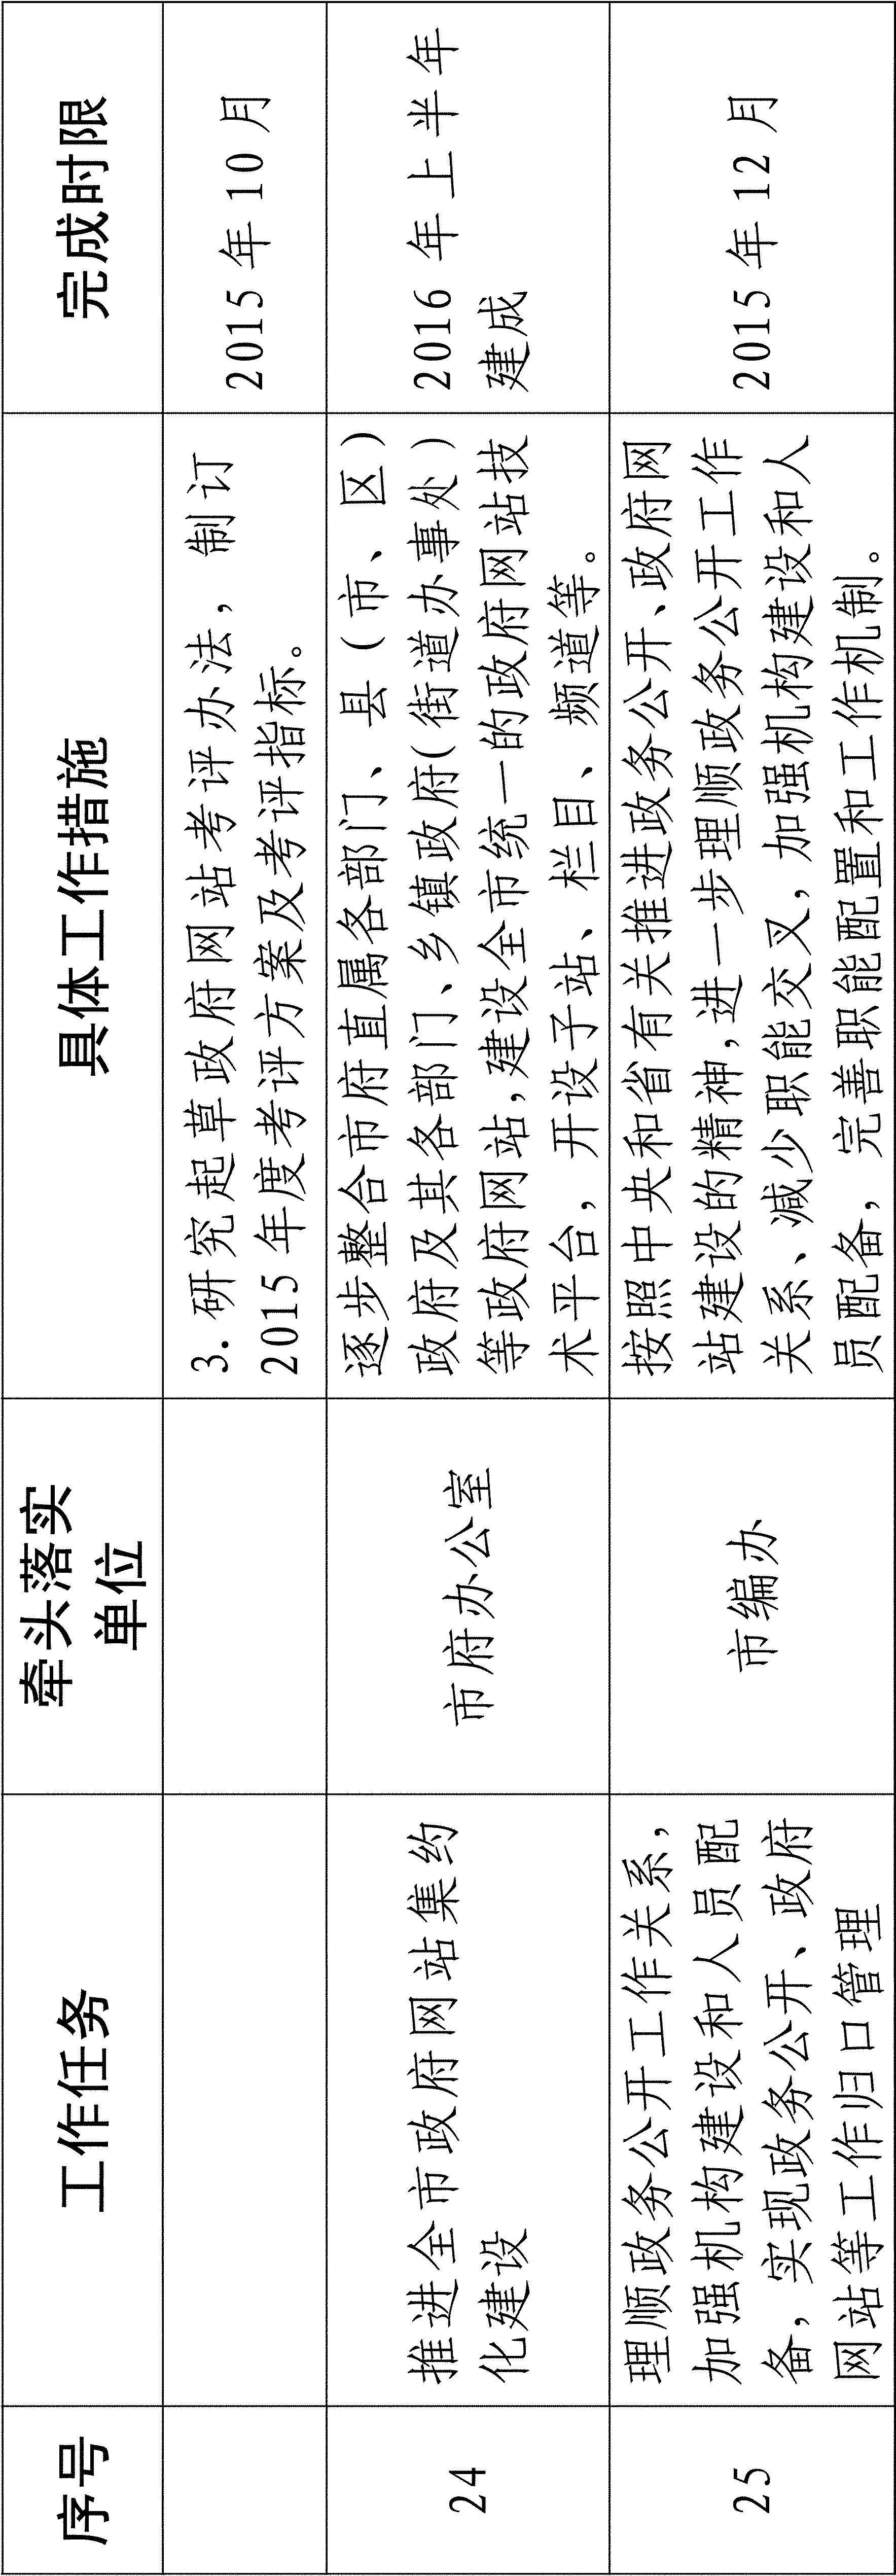 序号
工作任务
牵头落实
单位
具体工作措施
完成时限
3. 研究起草政府网站考评办法，制订
2015 年度考评方案及考评指标。
2015 年 10 月
24
推进全市政府网站集约
化建设
市府办公室
逐步整合市府直属各部门、县（市、区）
政府及其各部门、乡镇政府(街道办事处)
等政府网站,建设全市统一的政府网站技
术平台，开设子站、栏目、频道等。
2016 年上半年
建成
25
理顺政务公开工作关系，
加强机构建设和人员配
备，实现政务公开、政府
网站等工作归口管理
市编办
按照中央和省有关推进政务公开、政府网
站建设的精神,进一步理顺政务公开工作
关系、减少职能交叉，加强机构建设和人
员配备，完善职能配置和工作机制。
2015 年 12 月